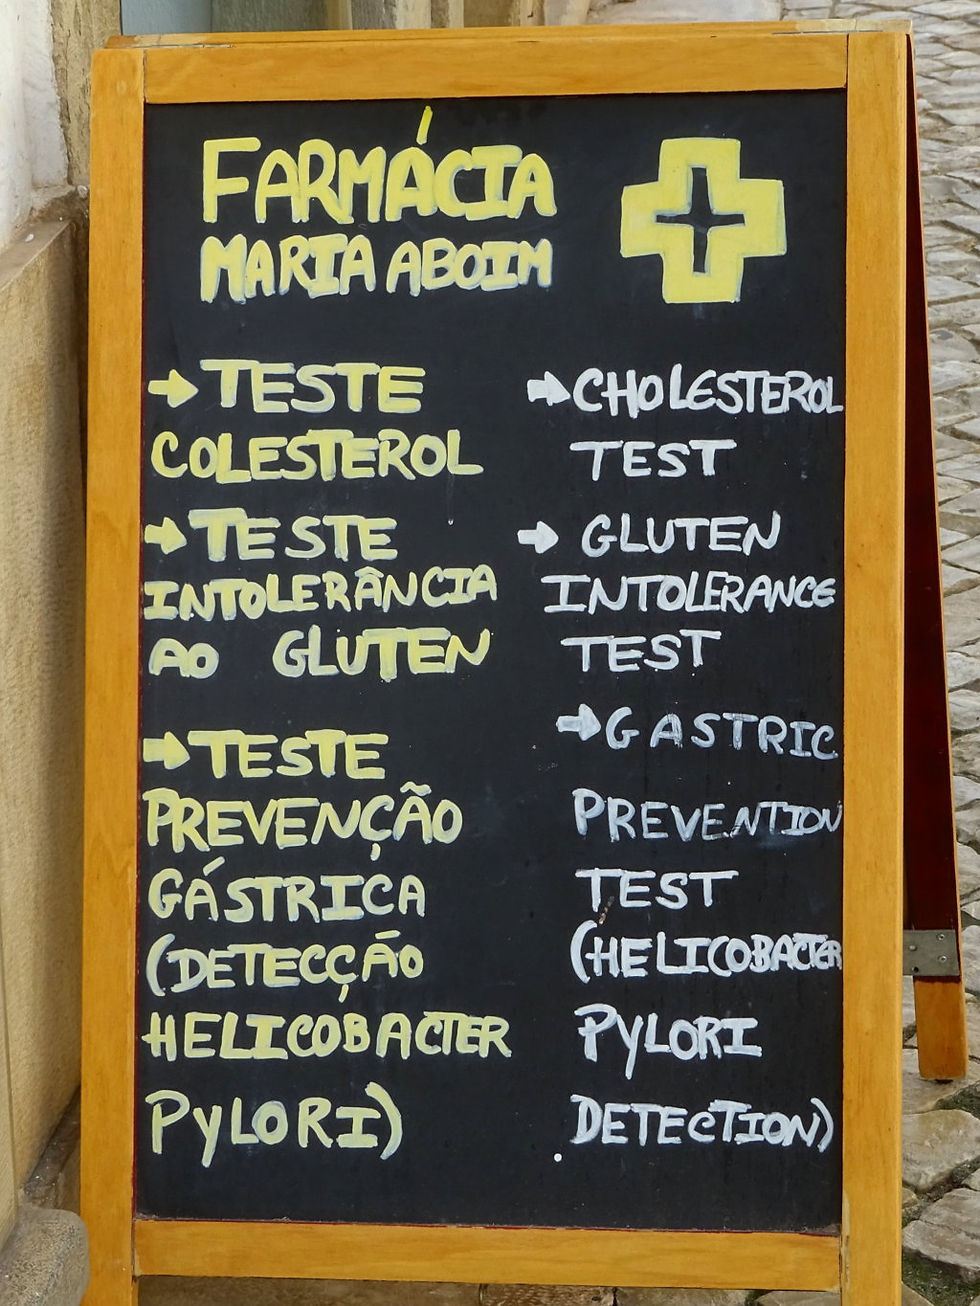 FARMÁCIA
MARIA ABOIM
→ TESTE
COLESTEROL
→ TESTE
INTOLERÂNCIA
AO GLUTEN
→ TESTE
PREVENÇÃO
GÁSTRICA
(DETECÇÃO
HELICOBACTER
PYLORI)
→ CHOLESTEROL
TEST
→ GLUTEN
INTOLERANCE
TEST
→ GASTRIC
PREVENTION
TEST
(HELICOBACTER
PYLORI
DETECTION)